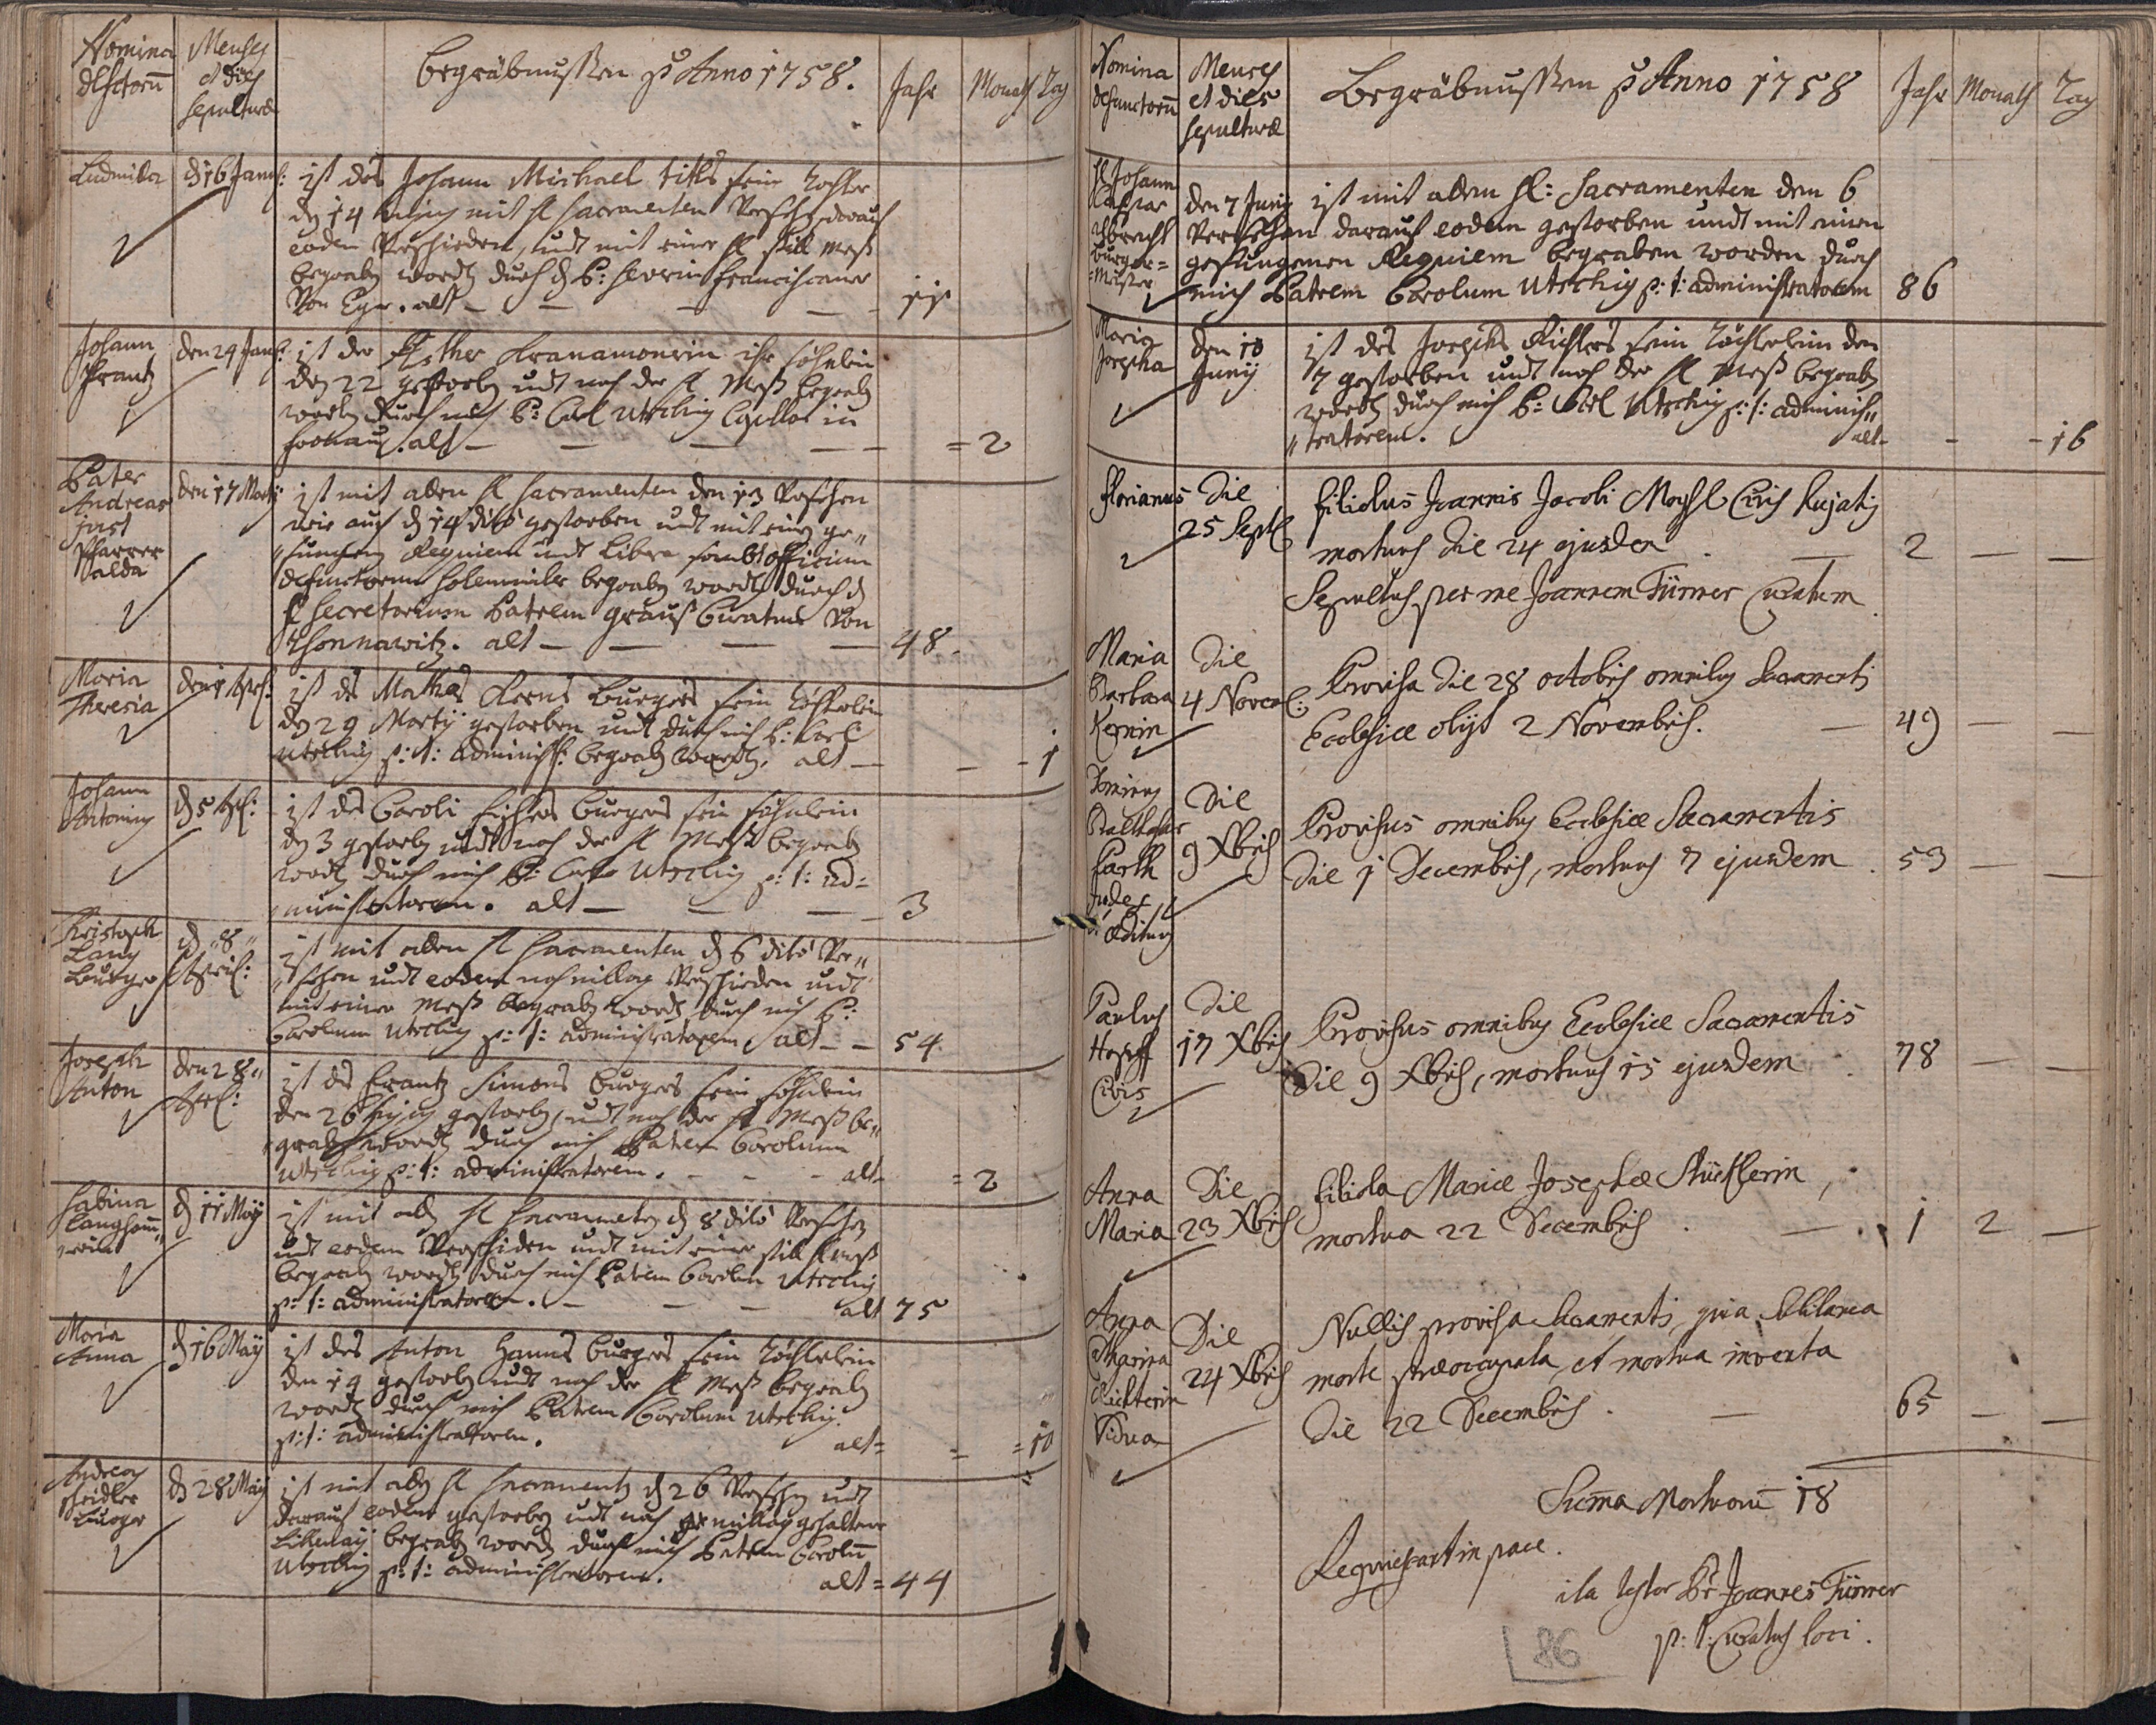 Nomina
defctorū
Menses
et dies
sepulturæ
Begräbnussen p Anno 1758.
Jahr
Monath
Tag
Ludmila
d 16 Janu:
ist des Johann Michael titls sein tochter
den 14 mit hl Sacramenten Versehen, darauf
eodem Verschieden, undt mit einer hl still Mess
begraben worden durch d P: Severin Franciscaner
Von Eger. alt —
11
Johann
Frantz
den 24 Janu:
ist der Esther Kranamonrin ihr söhnlein
den 22 gestorben undt nach der hl Mess begraben
worden durch mich P: Carl Utschig Capellan in
alt —
= 2
Pater
Andreas
just
Pfarrer
alda
den 17 Martij
ist mit allen hl Sacramenten den 13 Versehen
wie auch d 14 dito gestorben undt mit einen ge„
„sungenen Requiem undt Libera sambt officium
defunctorum solemniter begraben worden durch d
H Secretarium Patrem Grauss Curatus Von
Schonnawitz. alt —
48.
Maria
Theresia
den 1 Apr:
ist des Mathes Kerns Burgers sein töchterlein
den 29 Martij gestorben undt durch mich P: Carl
Utschig p: t: administr: begraben worden. alt —
- 1
Johann
Antonius
d 5 Apr:
ist des Caroli Burgers sein söhnlein
den 3 gestorben undt nach der hl Mess begraben
worden durch mich P: Carl Utschig p: t: ad=
ministratorem. alt —
3
Kristoph
Lang
Burger
d „8„
April:
ist mit allen hl Sacramenten d 6 dito Ver„
„sehen undt eodem nachmittag Verschieden undt
mit einer Mess begraben worden durch mich P:
Carolum Utschig p: t: administratorem alt —
54
Joseph
Anton
den 28„
Apr:
ist des Frantz Simons Burgers sein söhnlein
den 26 hujus gestorben, undt nach der hl Mess be„
„graben worden durch mich Patrem Carolum
Utschig p: t: administratorem. alt
= 2
Sabina
Langham„
d 11 Maij
ist mit allen hl Sacramenten d 8 dito Versehen
undt eodem Verschieden undt mit einer still Mess
begraben worden durch mich Patrem Carolum Utschig
p: t: administratorem. — alt
75
Maria
Anna
d 16 Maij
ist des Anton Hanns Burgers sein töchterlein
den 14 gestorben undt nach der hl Mess begraben
worden durch mich Patrem Carolum Utschig.
p: t: administratorem. alt=
= 10
Andreas
Burger
d 28 Maij
ist mit allen hl Sacramenten d 26 Versehen undt
darauf eodem gestorben undt nach mittag gehaltener
Littaney begraben worden durch mich Patrem Carolū
Utschig p: t: administratorem. alt =
44
Nomina
defunctorū
Menses
et dies
sepulturæ
Begräbnussen p Anno 1758
Jahr
Monath
Tag
H Johann
Caspar
Albrecht
Burger=
=meister
den 7 Junij
ist mit allen hl: Sacramenten den 6
Versehen darauf eodem gestorben undt mit einen
gesungenen Requiem begraben worden durch
mich Patrem Carolum Utschig p: t: administratorem
86
Maria
Josepha
den 10
Junij
ist des Josephs Richters sein töchterlein den
7 gestorben undt nach der hl Mess begraben
worden durch mich P: Carl Utschig p: t: adminis„
„tratorem. alt-
- 16
Florianus
Die
25 Sept:
filiolus Joannis Jacobi Civis hujatis
mortuus die 24 ejusdem
Sepultus per me Joannem Türmer Curatum
2 — —
Maria
Barbara
Kernin
Die
4 Novem:
Provisa die 28 octobris omnibus Sacramentis
Ecclesiæ obijt 2 Novembris. —
49 — —
Dominus
Balthasar
Parth
Judex
ædituus
Die
9 Xbris
Provisus omnibus Ecclesiæ Sacramentis
die 1 Decembris, mortuus 7 ejusdem.
53 — —
Paulus
Civis
Die
17 Xbris
Provisus omnibus Ecclesiæ Sacramentis
die 9 Xbris, mortuus 15 ejusdem
78 — —
Anna
Maria
Die
23 Xbris
filiola Mariæ Josephæ
mortua 22 Decembris. —
1 2 —
Anna
Richterin
Vidua
Die
24 Xbris
Nullis provisa Sacramentis, quia subitanea
morte præoccupata, et mortua inventa
die 22 Decembris. —
65 — —
Suma Mortuorū 18
Requiescant in pace.
ita testor Pr Joannes Türmer
p: t: Curatus loci.
86